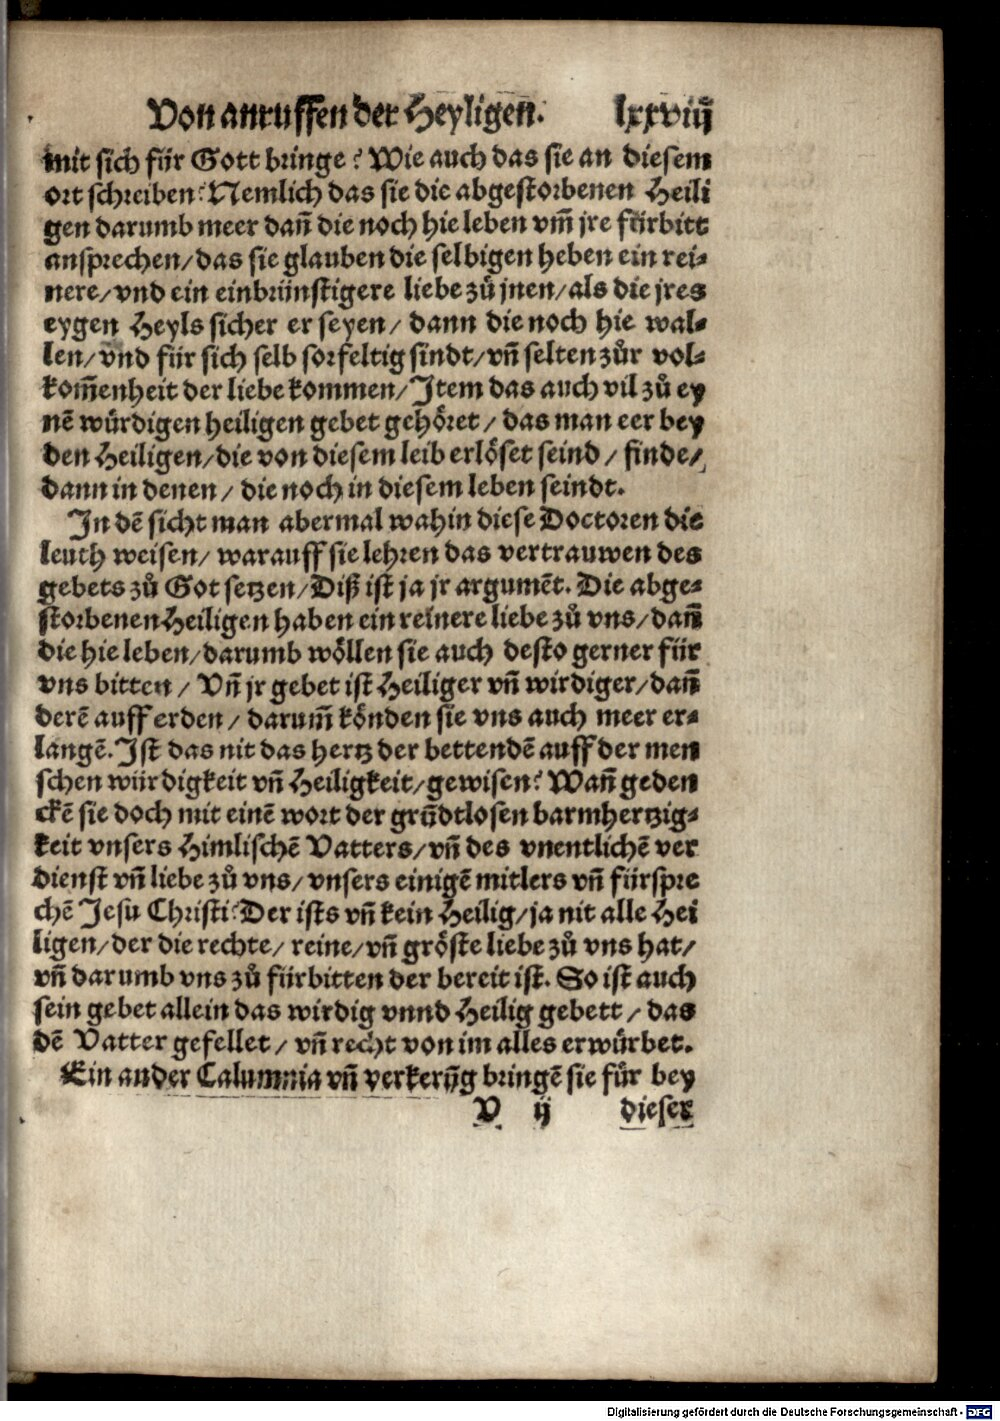 Von anruffen der Heyligen. lxxviij
mit sich für Gott bringe? Wie auch das sie an diesem
ort schreiben? Nemlich das sie die abgestorbenen Heili
gen darumb meer dañ die noch hie leben vm̃ jre fürbitt
ansprechen/das sie glauben die selbigen heben ein rei⸗
nere/vnd ein einbrünstigere liebe zů jnen/als die jres
eygen Heyls sicher er seyen/ dann die noch hie wal⸗
len/vnd für sich selb sorfeltig sindt/vñ selten zůr vol⸗
kom̃enheit der liebe kommen/Item das auch vil zů ey
nẽ würdigen heiligen gebet gehöret/ das man eer bey
den Heiligen/die von diesem leib erlöset seind/ finde/
dann in denen/ die noch in diesem leben seindt.
In dẽ sicht man abermal wahin diese Doctoren die
leuth weisen/ warauff sie lehren das vertrauwen des
gebets zů Got setzen/Diß ist ja jr argumẽt. Die abge⸗
storbenen Heiligen haben ein reinere liebe zů vns/dañ
die hie leben/darumb wöllen sie auch desto gerner für
vns bitten/ Vñ jr gebet ist Heiliger vñ wirdiger/dañ
derẽ auff erden/ darum̃ könden sie vns auch meer er⸗
langẽ. Ist das nit das hertz der bettendẽ auff der men
schen würdigkeit vñ Heiligkeit/gewisen? Wañ geden
ckẽ sie doch mit einẽ wort der grũdtlosen barmhertzig⸗
keit vnsers Himlischẽ Vatters/vñ des vnentlichẽ ver
dienst vñ liebe zů vns/vnsers einigẽ mitlers vñ fürspre
chẽ Jesu Christi? Der ists vñ kein Heilig/ja nit alle Hei
ligen/der die rechte/ reine/vñ gröste liebe zů vns hat/
vñ darumb vns zů fürbitten der bereit ist. So ist auch
sein gebet allein das wirdig vnnd Heilig gebett/ das
dẽ Vatter gefellet/ vñ recht von im alles erwürbet.
Ein ander Calumnia vñ verkerũg bringẽ sie für bey
V ij dieser
Digitalisierung gefördert durch die Deutsche Forschungsgemeinschaft - DFG